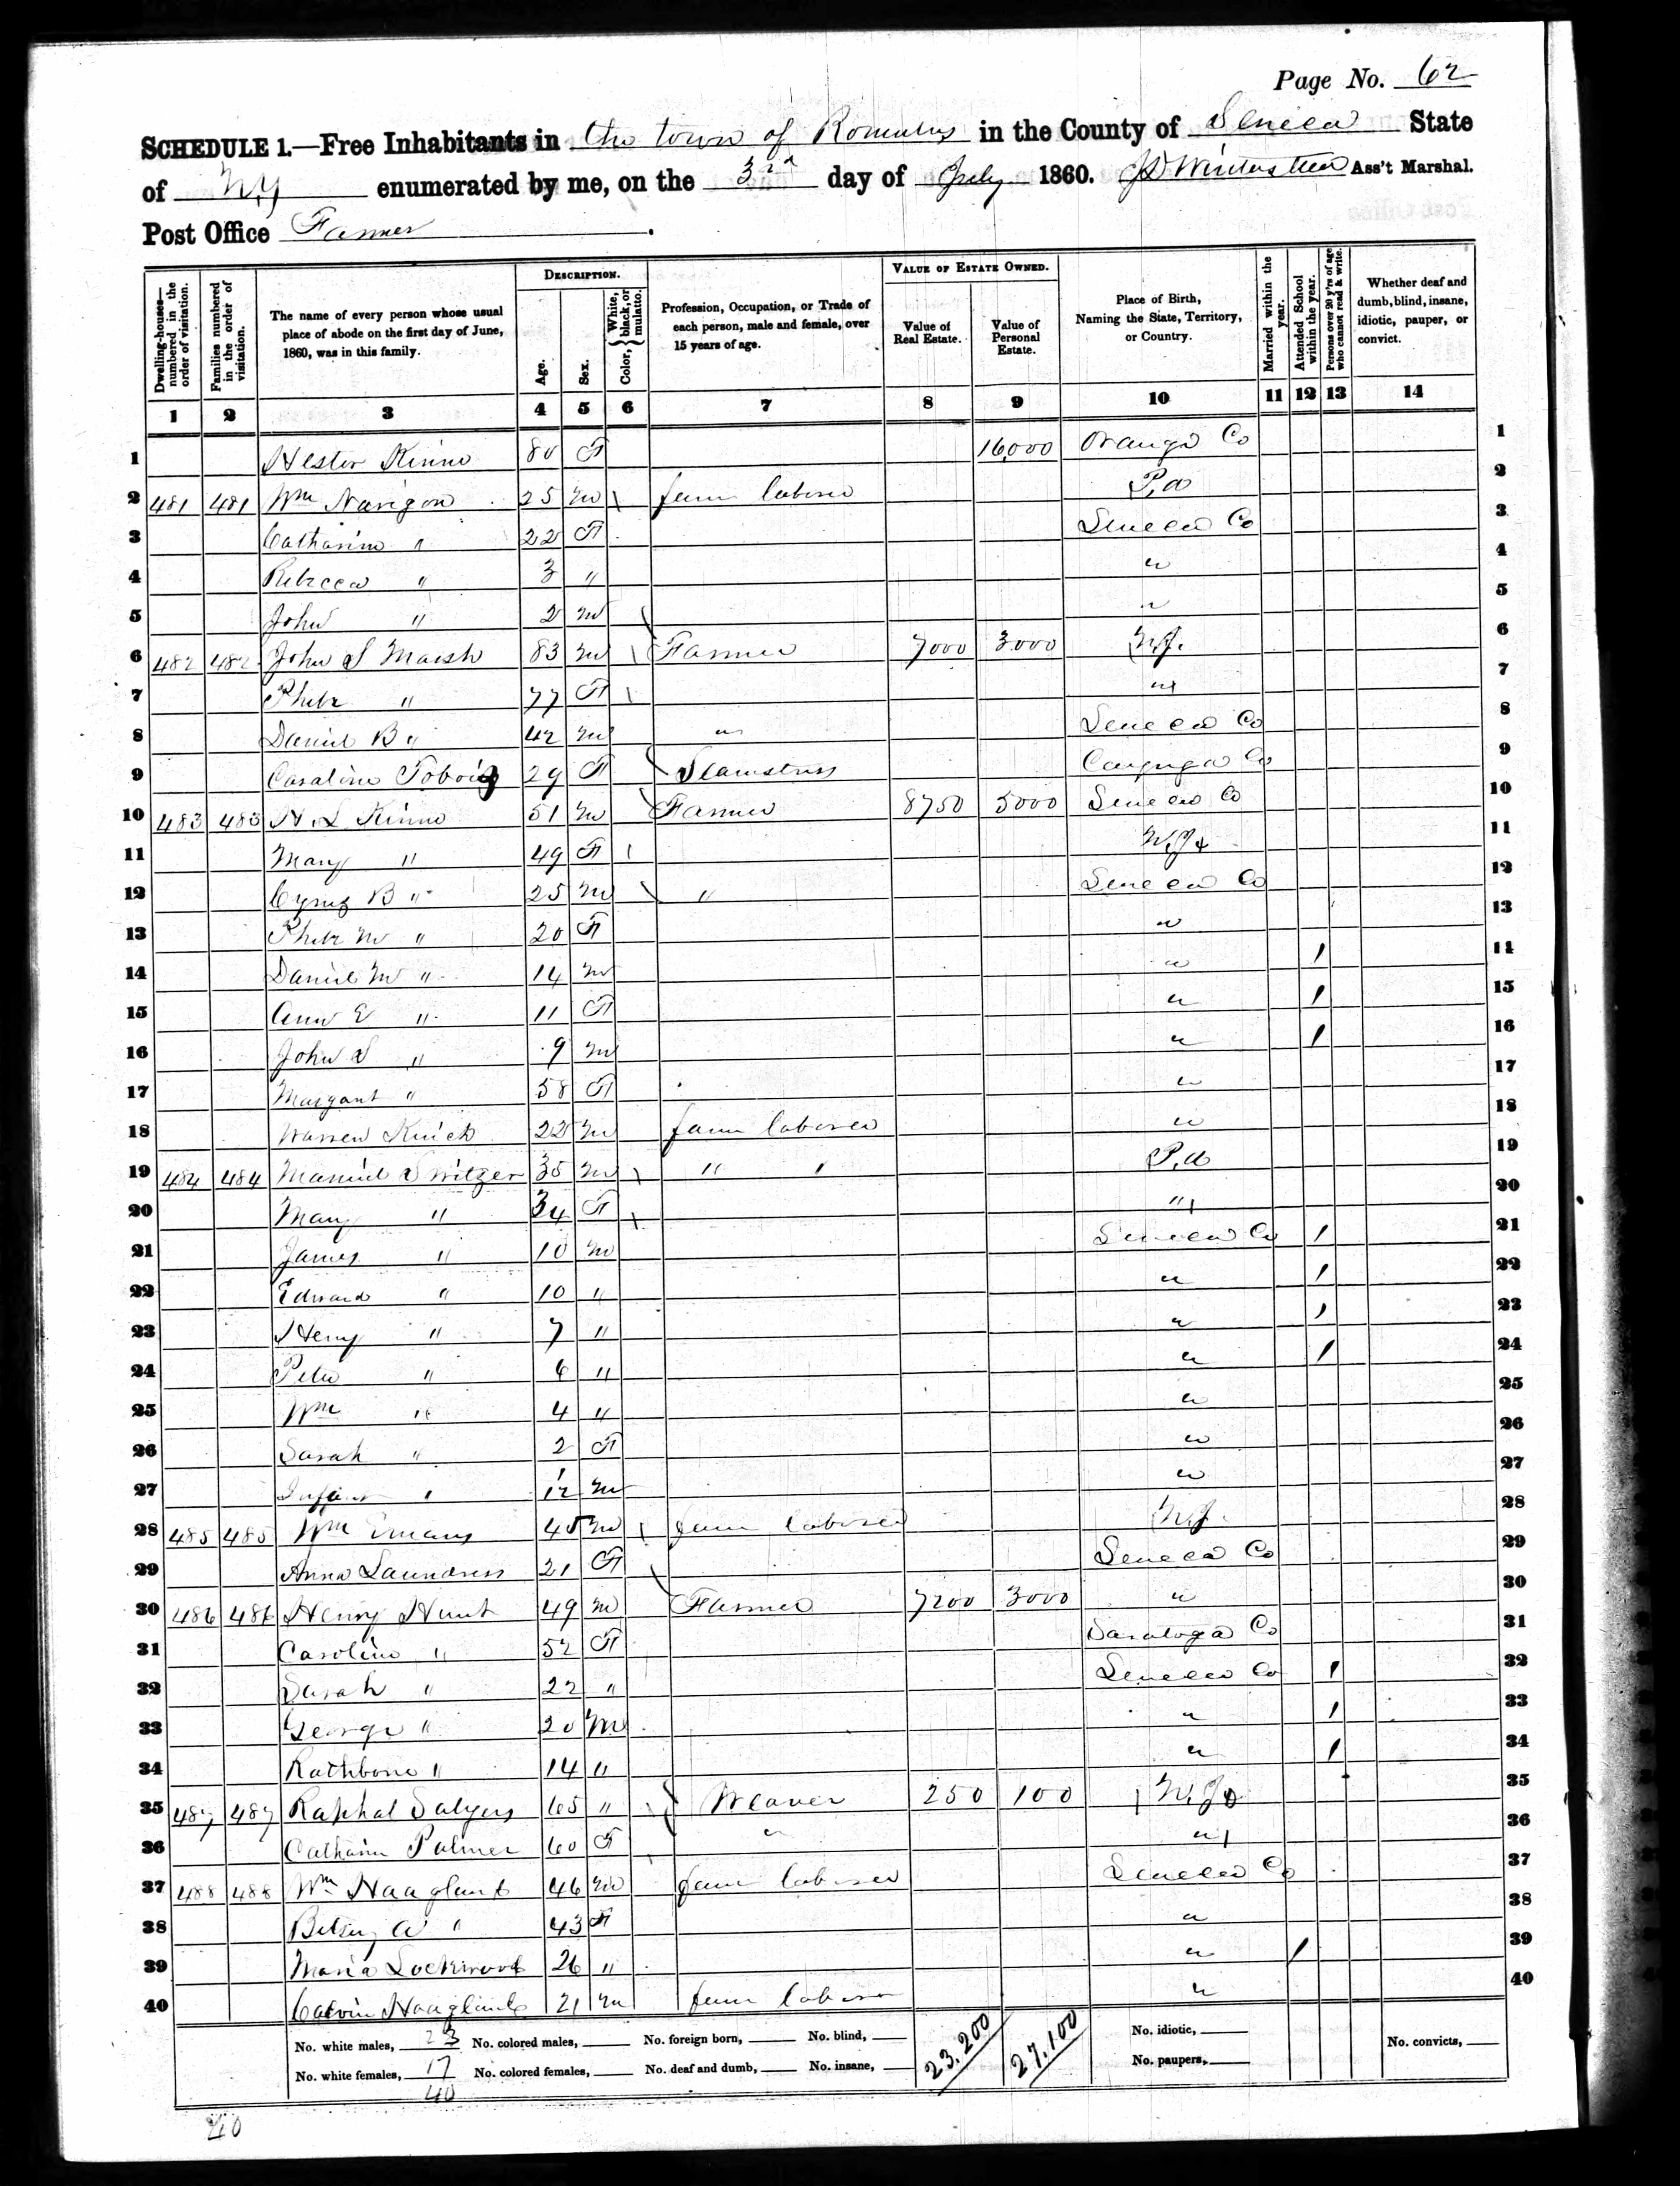 Page No. 62
SCHEDULE 1.—Free Inhabitants in the town of Romulus in the County of Seneca State
of N.Y enumerated by me, on the 3rd day of July 1860. J D Wintersteen Ass't Marshal.
Post Office Farmer
Dwelling-houses—numbered in the order of visitation. Families numbered in the order of visitation. The name of every person whose usual place of abode on the first day of June, 1860, was in this family. DESCRIPTION. Age. Sex. Color, White, black, or mulatto. Profession, Occupation, or Trade of each person, male and female, over 15 years of age. VALUE OF ESTATE OWNED. Value of Real Estate. Value of Personal Estate. Place of Birth, Naming the State, Territory, or Country. Married within the year. Attended School within the year. Persons over 20 y'rs of age who cannot read & write. Whether deaf and dumb, blind, insane, idiotic, pauper, or convict.
1 2 3 4 5 6 7 8 9 10 11 12 13 14
1 Hester Kinne 80 F 16,000 Orange Co 1
2 481 481 Wm Narigon 25 M farm laborer P.a 2
3 Catharine " 22 F Seneca Co 3
4 Rebecca " 3 " " 4
5 John " 2 M " 5
6 482 482 John S Marsh 83 M Farmer 7000 3000 N.J. 6
7 Phebe " 77 F " 7
8 Daniel B " 42 M " Seneca Co 8
9 Caroline 29 F Seamstress Cayuga Co 9
10 483 483 H. L Kinne 51 M Farmer 8750 5000 Seneca Co 10
11 Mary " 49 F N.J. 11
12 Cyrus B " 25 M " Seneca Co 12
13 Phebe M " 20 F " 13
14 Daniel M " 14 M " / 14
15 Ann E " 11 F " / 15
16 John S " 9 M " / 16
17 Margaret " 58 F " 17
18 Warren 22 M farm laborer " 18
19 484 484 Manuel Switzer 35 M " " P.a 19
20 Mary " 34 F " 20
21 James " 10 M Seneca Co / 21
22 Edward " 10 " " / 22
23 Henry " 7 " " / 23
24 Peter " 6 " " / 24
25 Wm " 4 " " 25
26 Sarah " 2 F " 26
27 Infant " 1/12 M " 27
28 485 485 Wm Emans 45 M farm laborer N.J. 28
29 Anna Laundress 21 F Seneca Co 29
30 486 486 Henry Hunt 49 M Farmer 7200 3000 " 30
31 Caroline " 52 F Saratoga Co 31
32 Sarah " 22 " Seneca Co / 32
33 George " 20 M " / 33
34 Rathbone " 14 " " / 34
35 487 487 Raphal Salyers 65 " Weaver 250 100 N.J. 35
36 Catharin Palmer 60 F " " 36
37 488 488 Wm Haaglant 46 M farm laborer Seneca Co 37
38 Betsey A " 43 F " 38
39 Maria Lockwood 26 " " / 39
40 Calvin Haaglant 21 M farm laborer " 40
No. white males, 23 No. colored males, No. foreign born, No. blind, 23.200 27.100 No. idiotic, No. convicts,
No. white females, 17 No. colored females, No. deaf and dumb, No. insane, No. paupers,
40
40